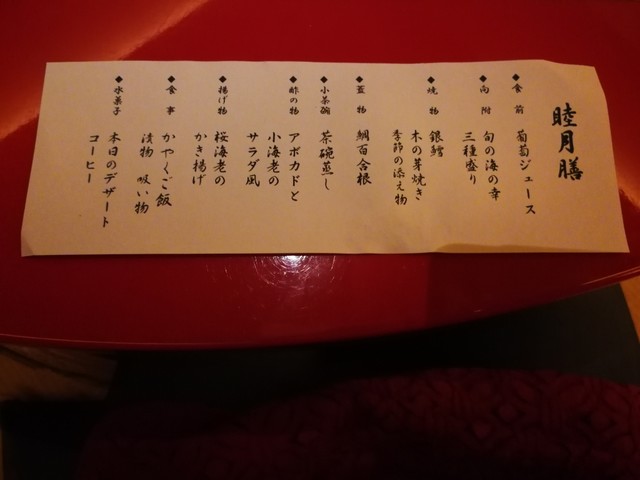 睦月膳
◆食前 葡萄ジュース
◆向附 旬の海の幸
三種盛り
◆焼物 銀鱈
木の芽焼き
季節の添え物
◆蓋物 鯛百合根
◆小茶碗 茶碗蒸し
◆酢の物 アボカドと
小海老の
サラダ風
◆揚げ物 桜海老の
かき揚げ
◆食事 かやくご飯
漬物 吸い物
◆水菓子 本日のデザート
コーヒー